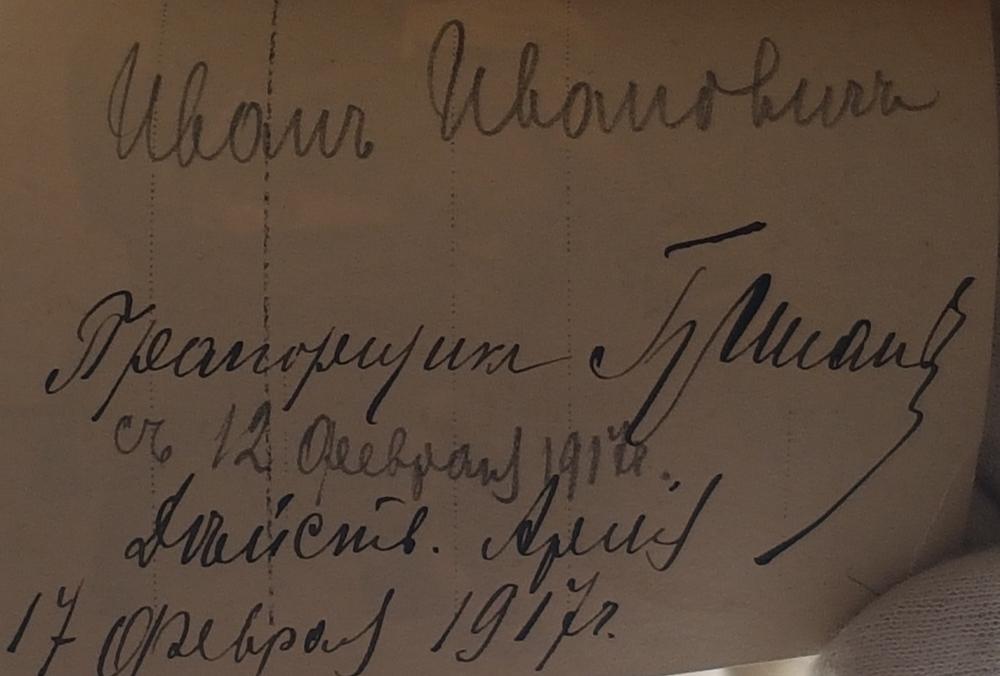 Иванъ Ивановичъ
Прапорщикъ
съ 12 февраля 1917 г.
Дѣйств. Армія
17 февраля 1917 г.